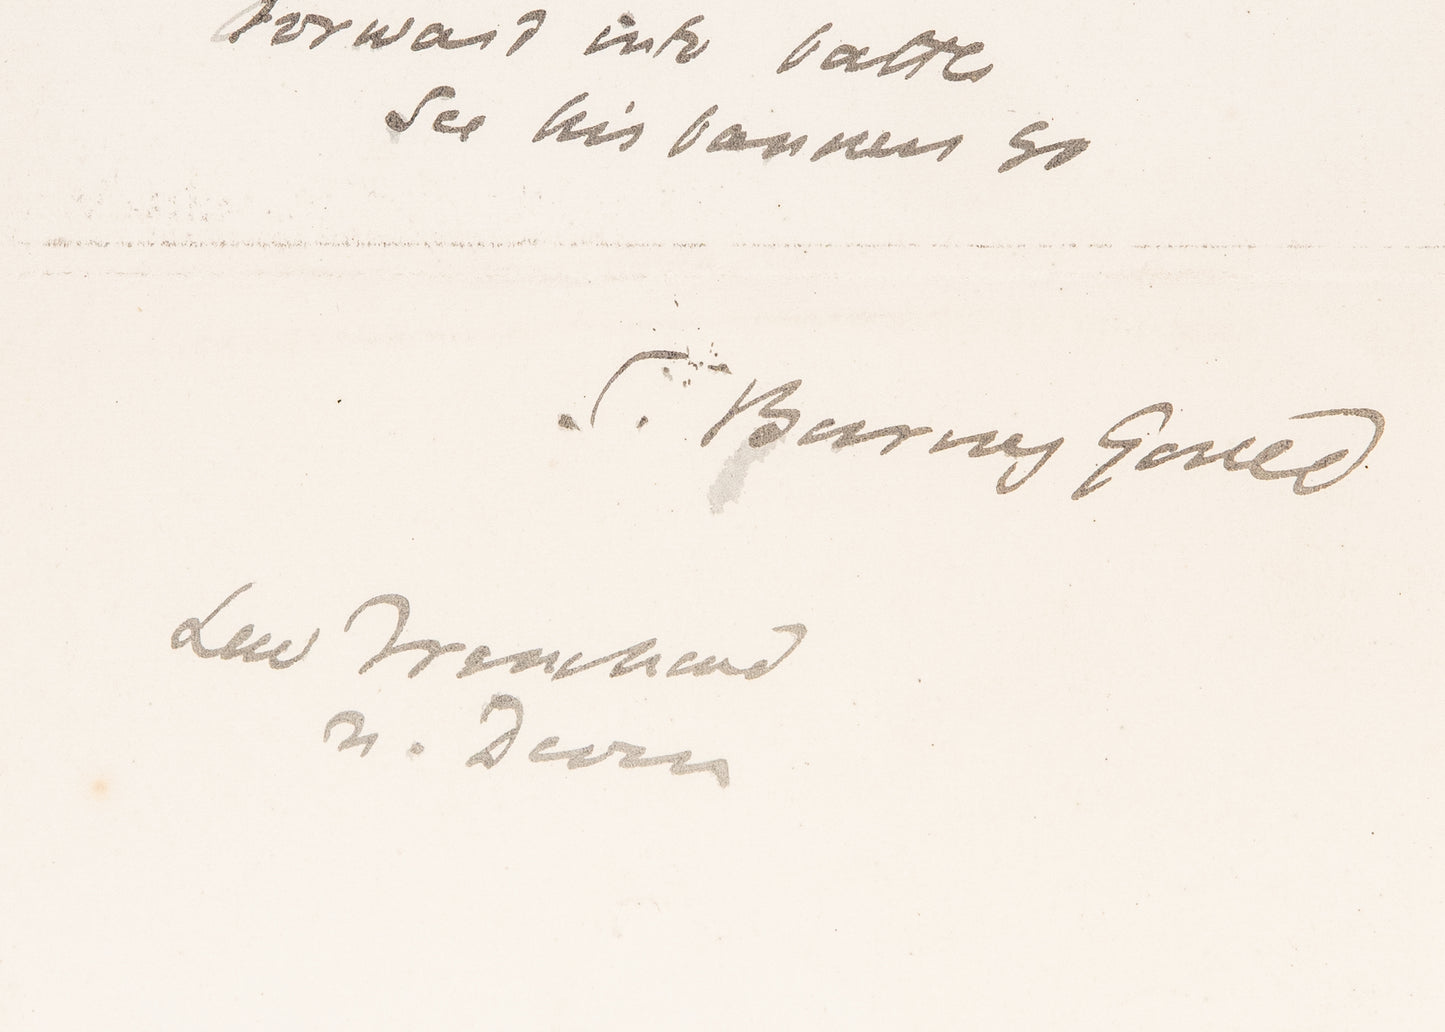 Forward into battle
See his banners go
S. Baring Gould
Lew Trenchard
N. Devon